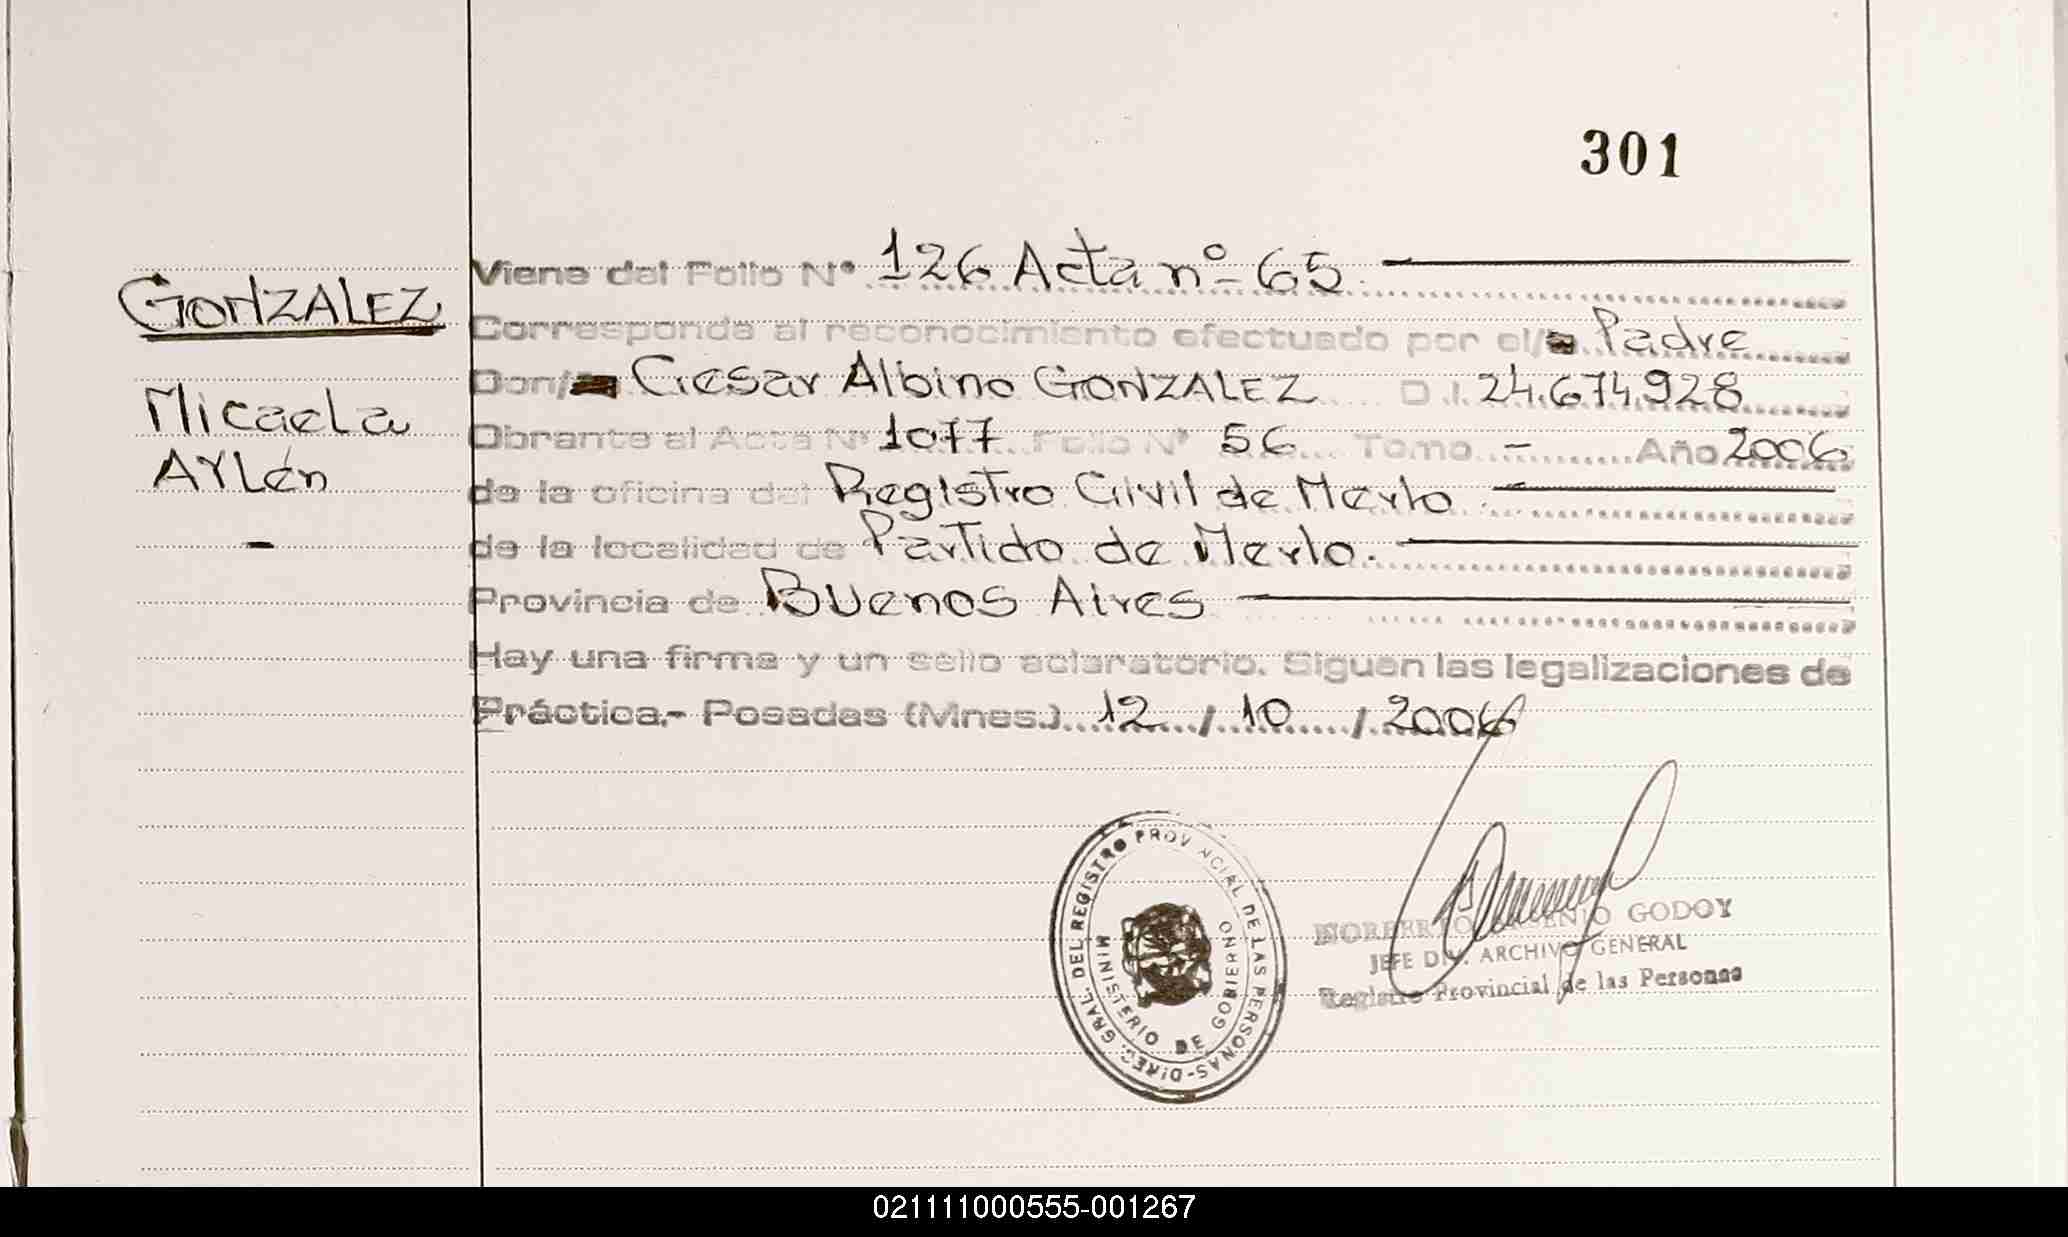 301
GONZALEZ
Micaela
AYLén
-
Viene del Folio Nº 126 Acta nº 65
Corresponde al reconocimiento efectuado por el/ Padre
Don/ Cesar Albino GONZALEZ D.I. 24.674.928
Obrante al Acta Nº 1077 Folio Nº 56 Tomo - Año 2006
de la oficina del Registro Civil de Merlo
de la localidad de Partido de Merlo.
Provincia de Buenos Aires
Hay una firma y un sello aclaratorio. Siguen las legalizaciones de
Práctica.- Posadas (Mnes.) 12 / 10 / 2006
DIREC. GRAL. DEL REGISTRO PROVINCIAL DE LAS PERSONAS-
MINISTERIO DE GOBIERNO
NORBERTO GODOY
JEFE DIV. ARCHIVO GENERAL
Registro Provincial de las Personas
021111000555-001267